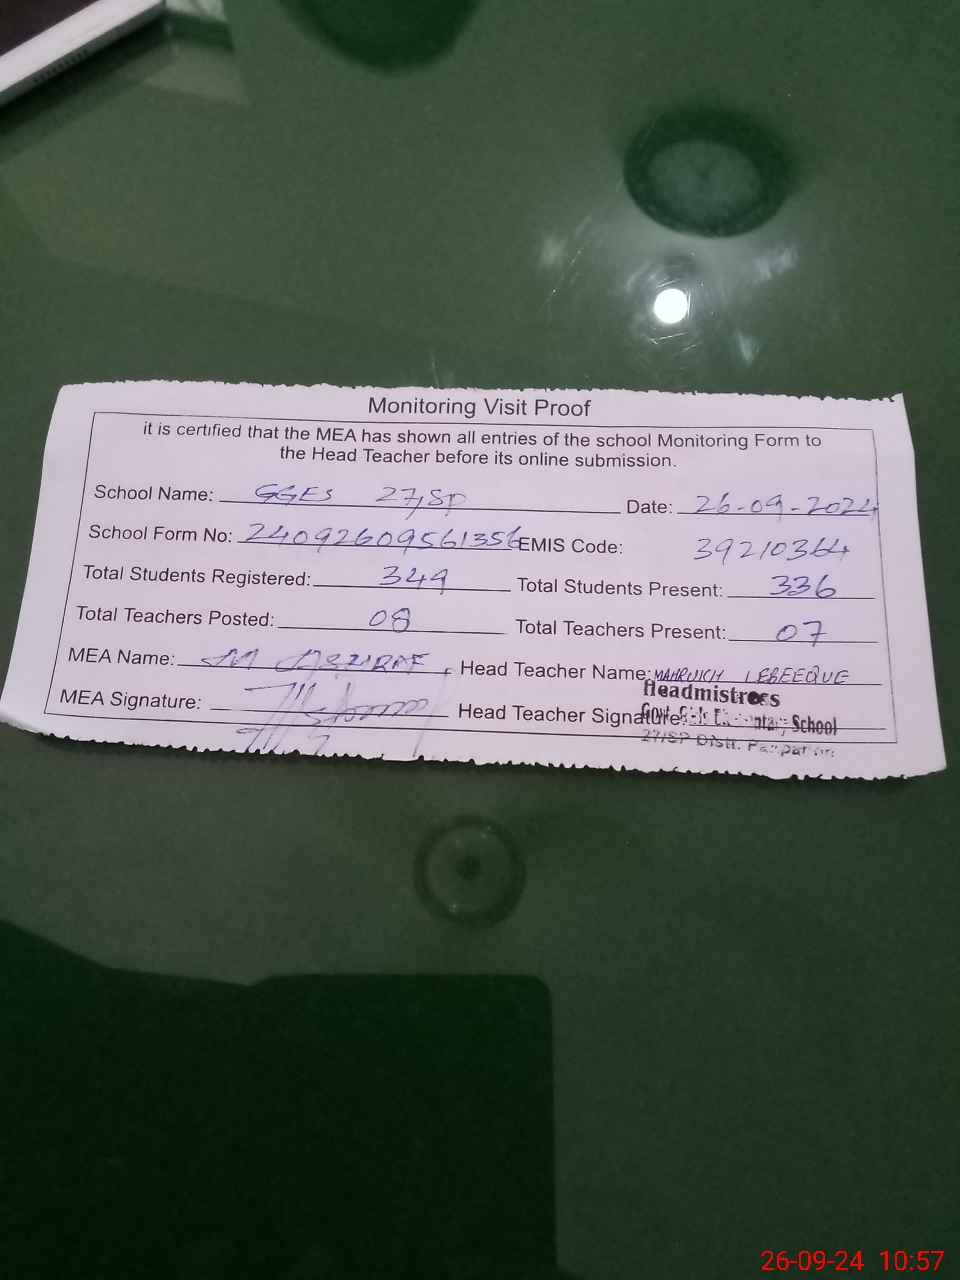 Monitoring Visit Proof
it is certified that the MEA has shown all entries of the school Monitoring Form to
the Head Teacher before its online submission.
School Name: GGES 27/SP Date: 26-09-2024
School Form No: 24092609561356 EMIS Code: 39210364
Total Students Registered: 349 Total Students Present: 336
Total Teachers Posted: 08 Total Teachers Present: 07
MEA Name: M Head Teacher Name:
MEA Signature: Head Teacher Signature:
Headmistress
Govt. Girls Elementary School
27/SP Distt. Pakpattan
26-09-24 10:57